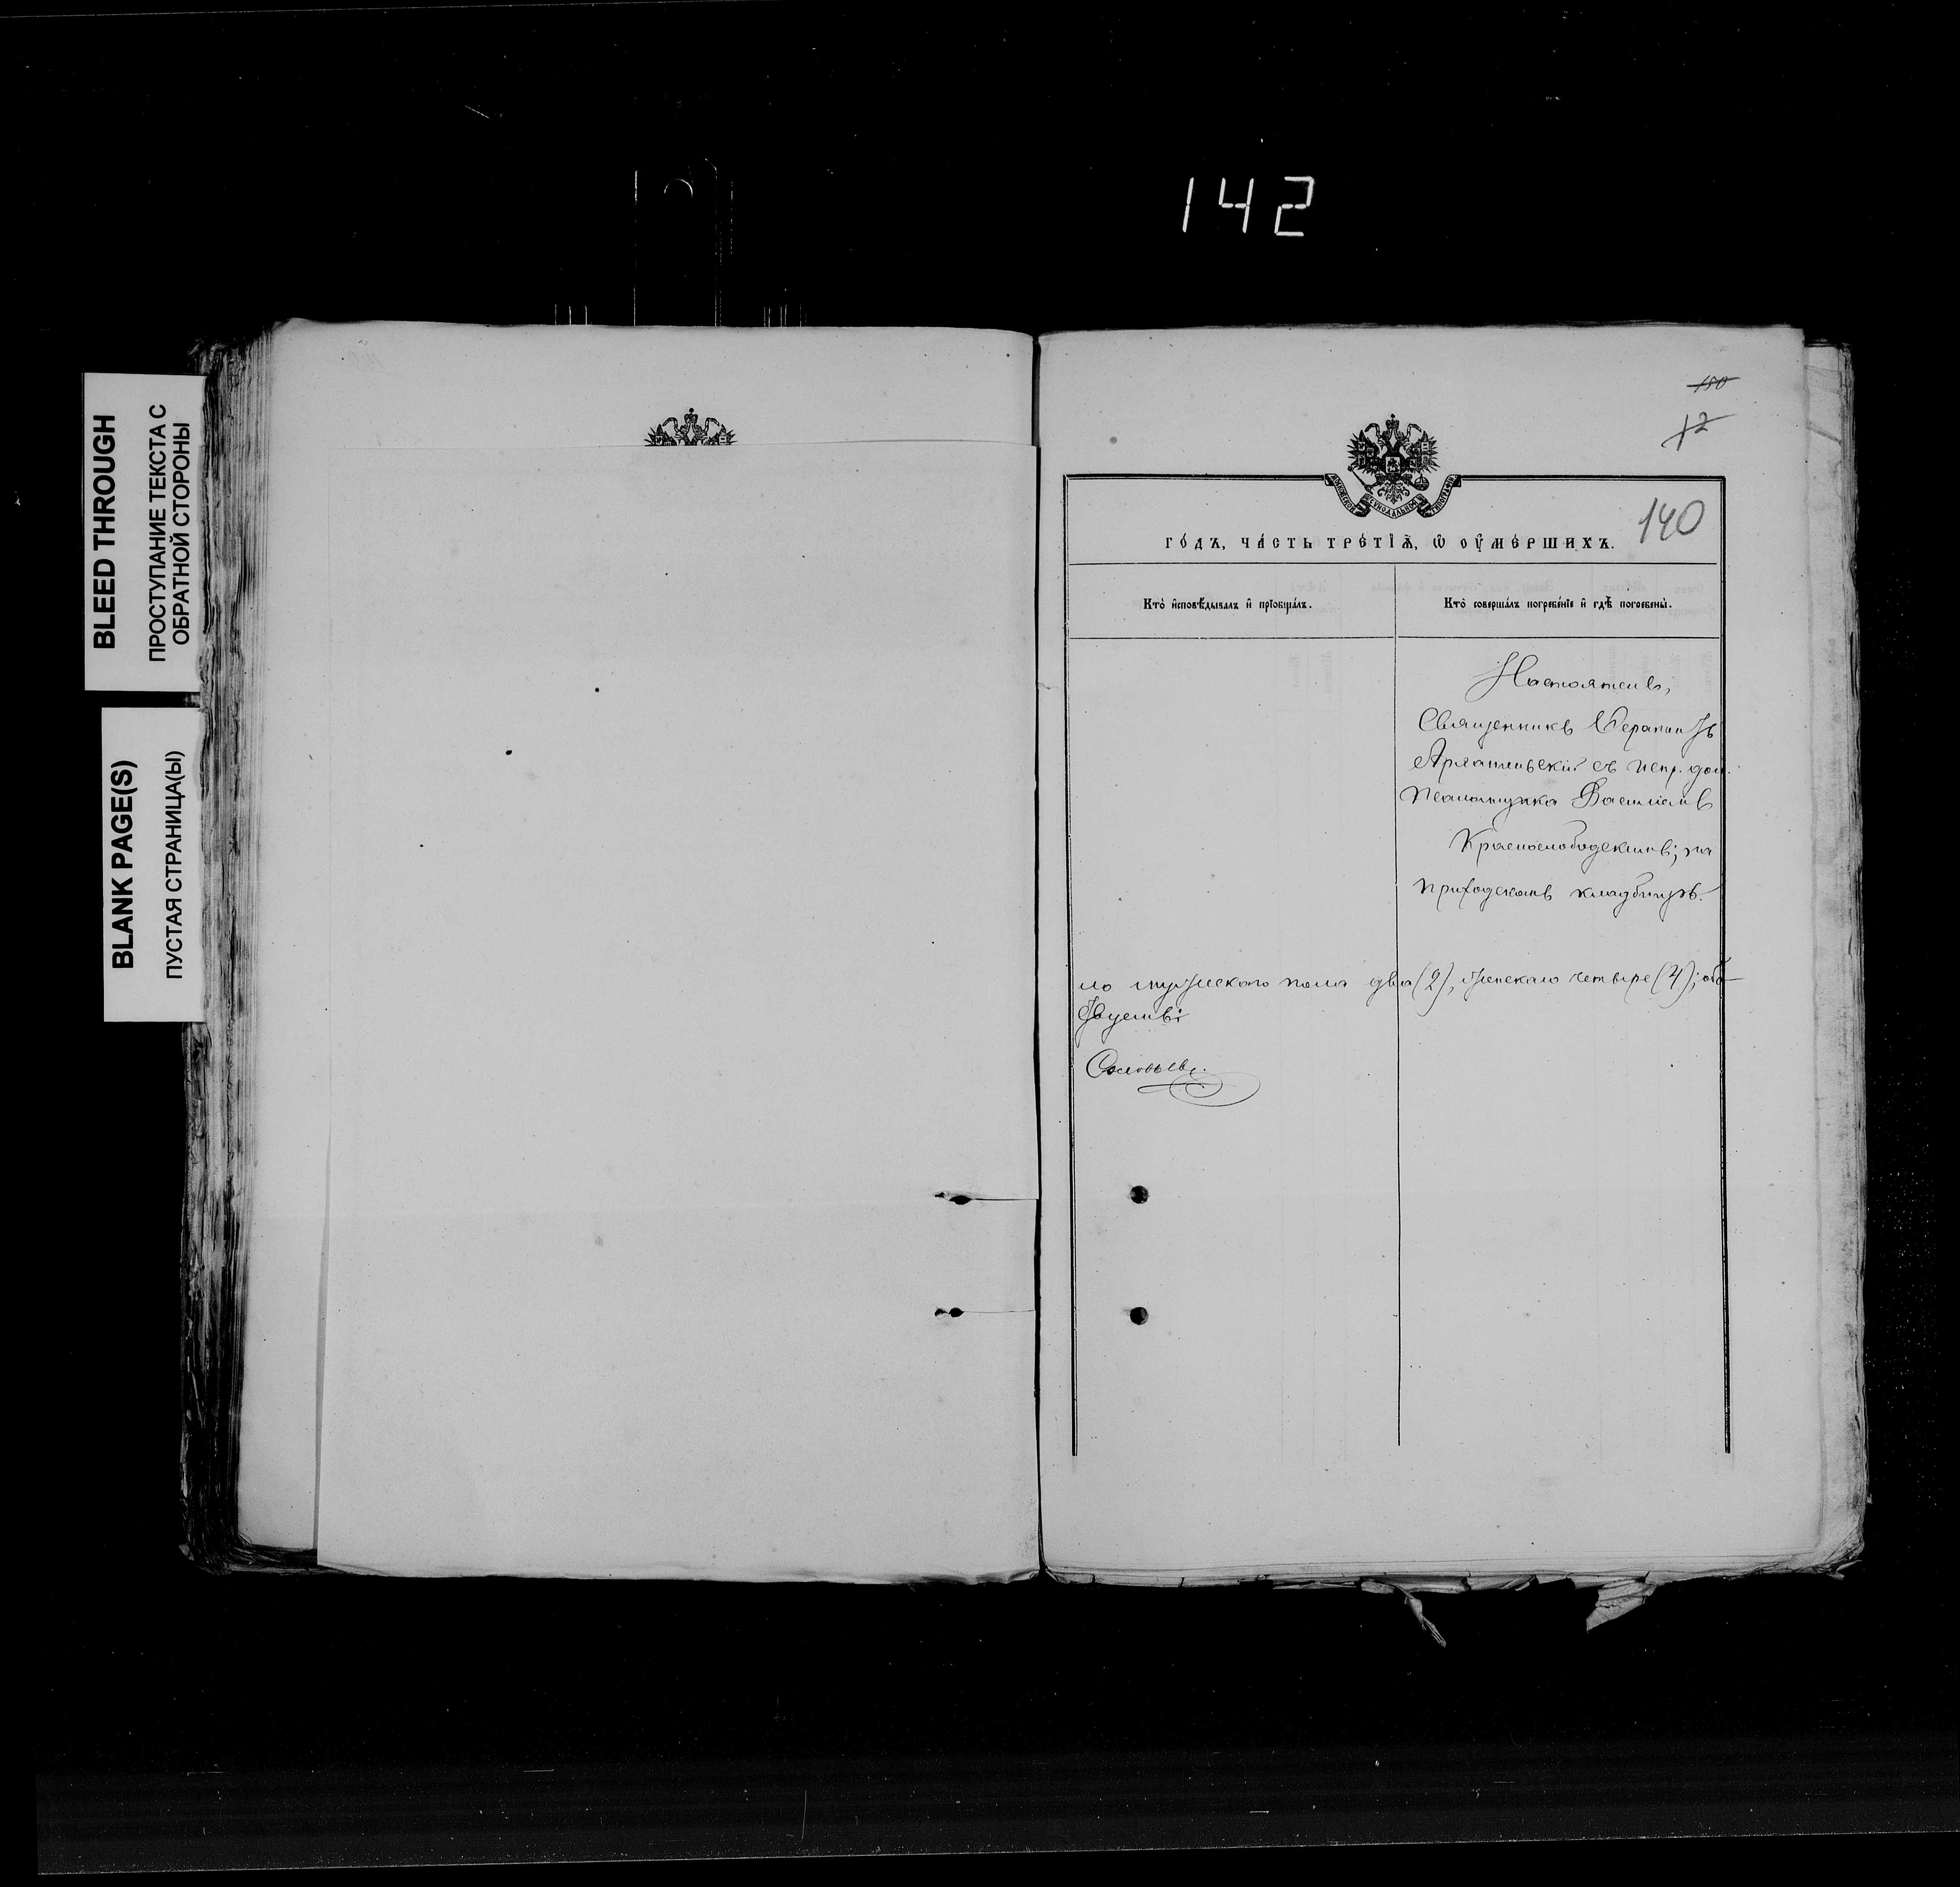 142
BLEED THROUGH
ПРОСТУПАНИЕ ТЕКСТА С
ОБРАТНОЙ СТОРОНЫ
BLANK PAGE(S)
ПУСТАЯ СТРАНИЦА(Ы)
150
12
140
МОСКОВСКОЙ СѴНОДАЛЬНОЙ ТИПОГРАФІИ
ГО́ДЪ, ЧА́СТЬ ТРЕ́ТІѦ, Ѡ҆ ОУ҆МЕ́РШИХЪ.
Кто̀ и҆сповѣ́дывалъ и҆ прїобща́лъ.
Кто̀ соверша́лъ погребе́нїе и҆ гдѣ̀ погребены̀.
Настоятель,
Священникъ Ѳерапонтъ
съ испр. дол.
псаломщика Василіемъ
Краснослободскимъ; на
приходскомъ кладбищѣ.
ло мужескаго пола два (2), женскаго четыре (4); обо-
Соловьевъ.